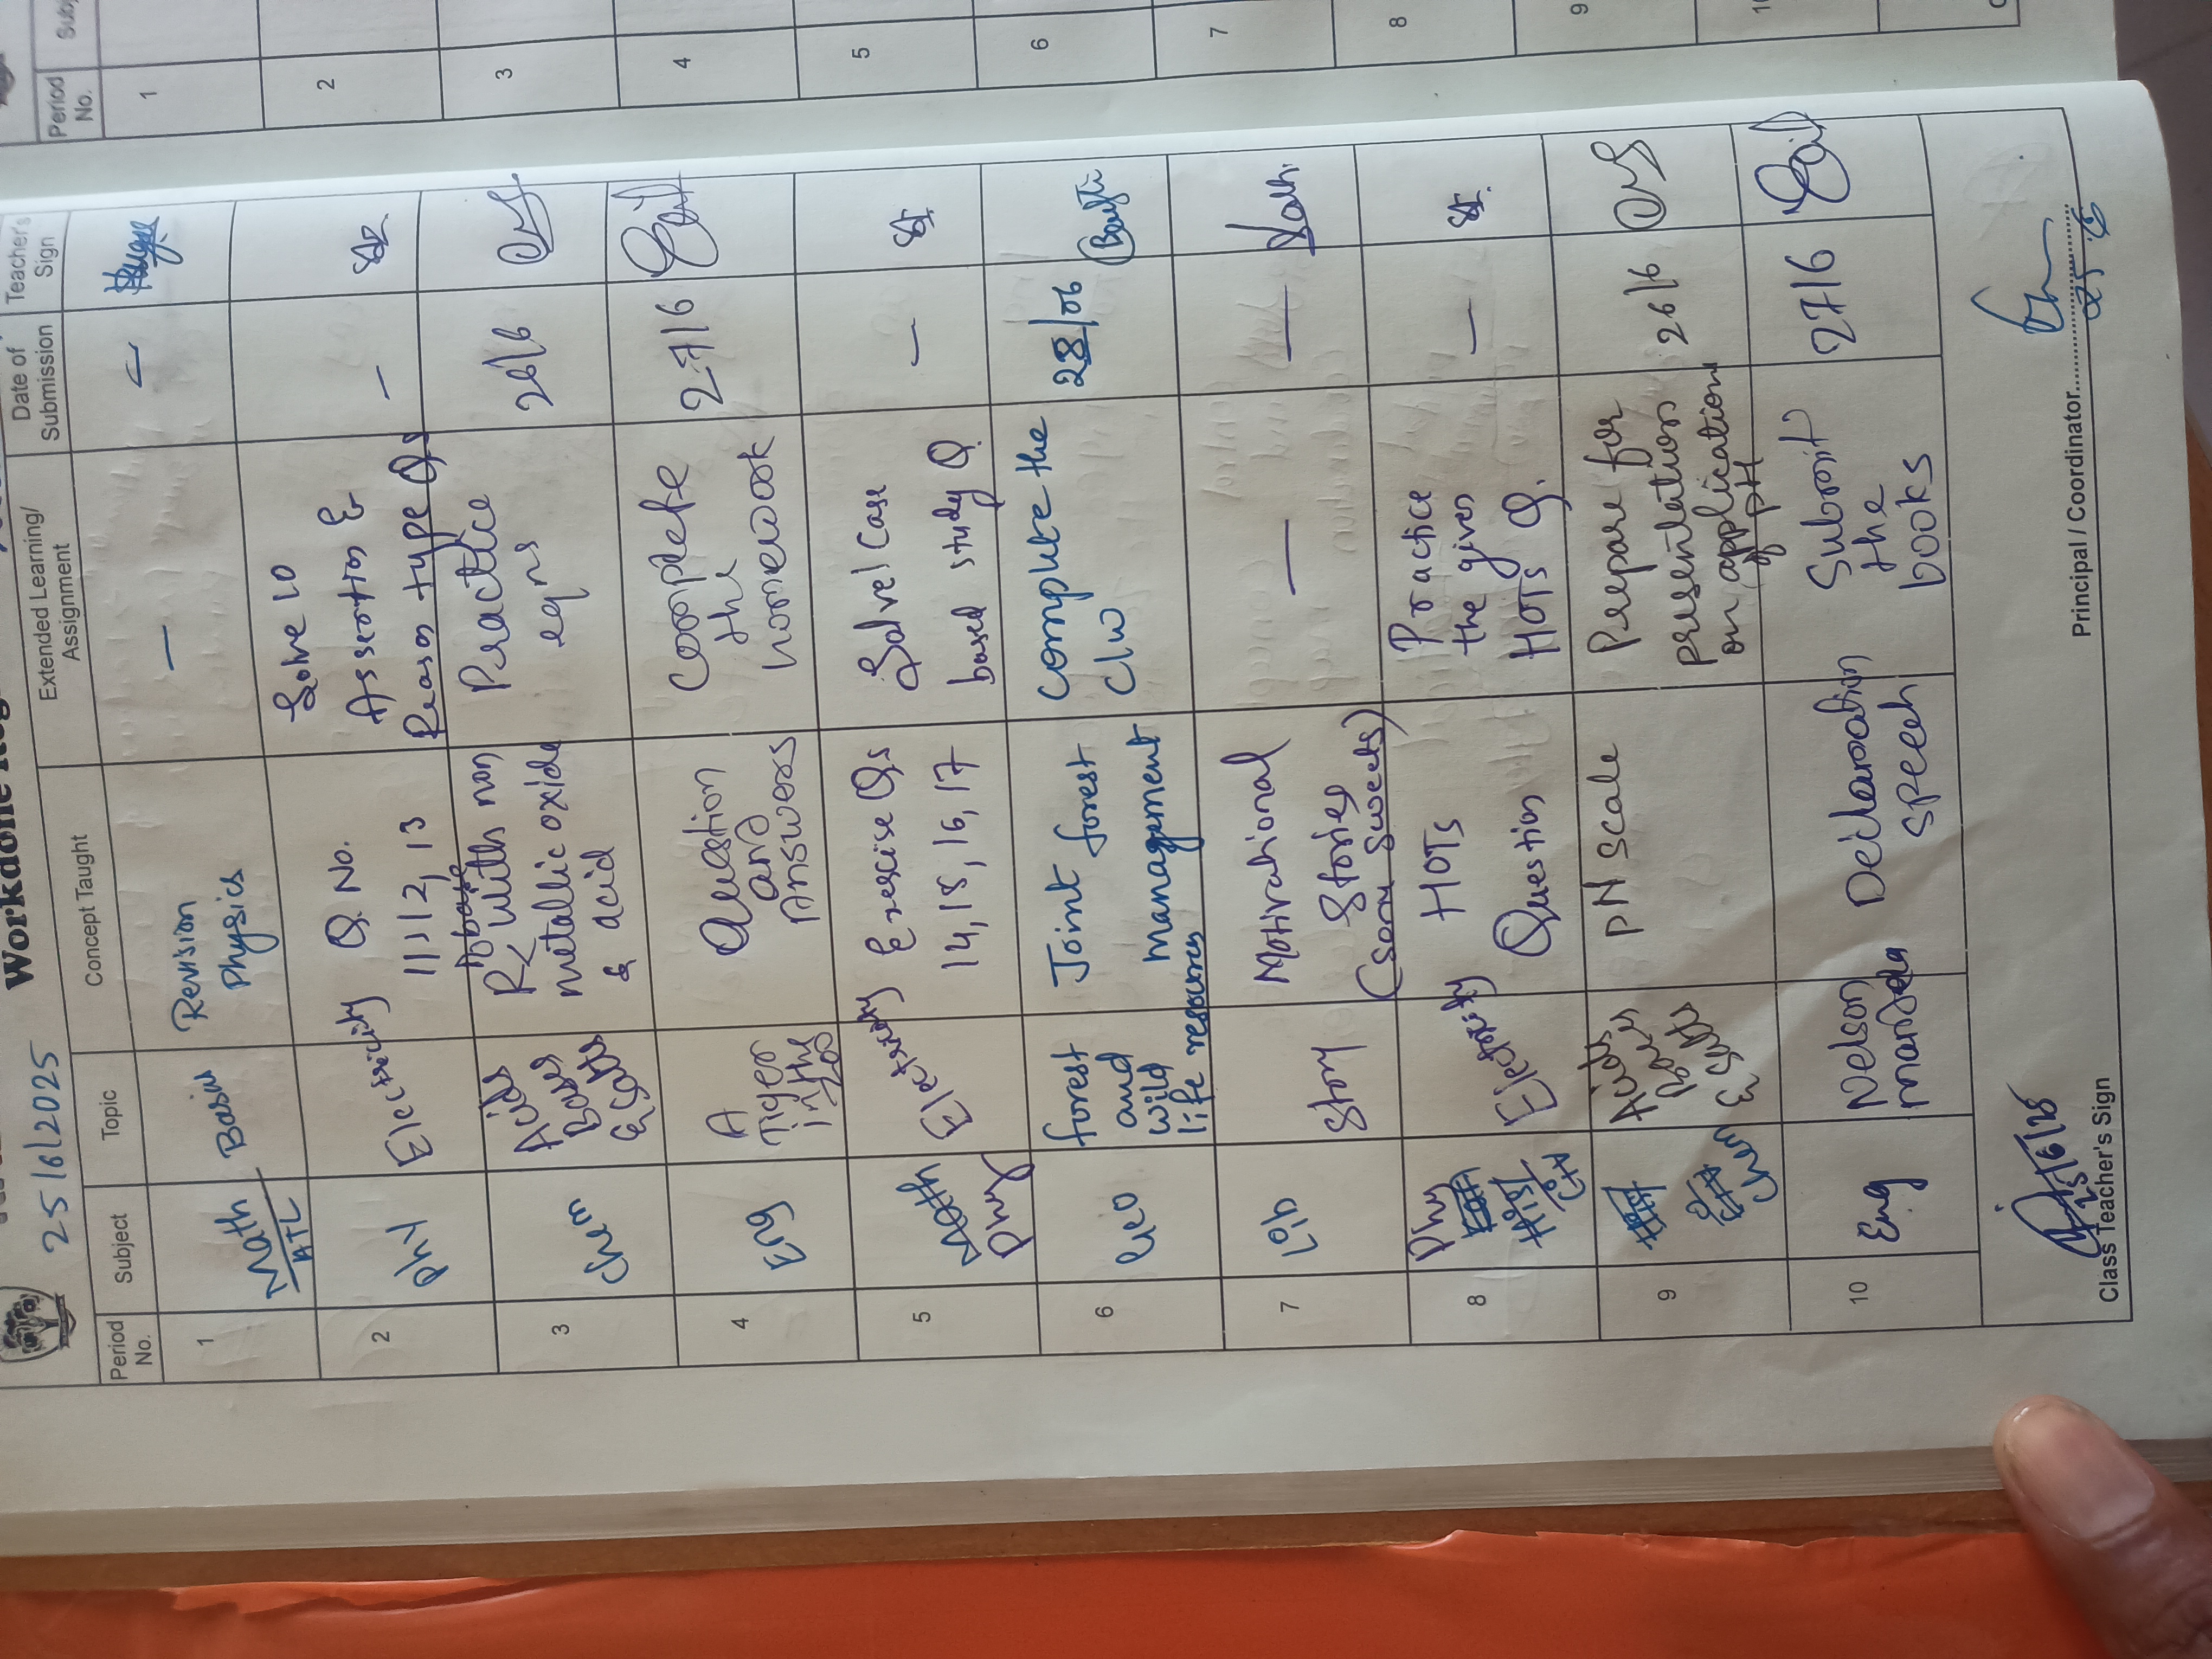 25/6/2025
Period No.
Subject
Topic
Concept Taught
Extended Learning/ Assignment
Date of Submission
Teacher's Sign
1
Math
ATL
Basius
Revision
Physics
—
—
2
Phy
Electricity
Q. No.
11, 12, 13
Solve 10
Assertion &
Reason type Qs
—
3
Chem
Acids
Bases
& Salts
Rx With non
metallic oxide
& acid
Practice
eqns
26/6
4
Eng
A
Tiger
in the
zoo
Question
and
Answers
Complete
the
homework
27/6
5
Phy
Electricity
Exercise Qs
14, 15, 16, 17
Solve Case
based study Q.
—
6
Geo
forest
and
wild
life resources
Joint forest
management
Complete the
C/w
28/06
7
Lib
Story
Motivational
Stories
—
—
8
Phy
Electricity
HOTs
Question
Practice
the given
HOTs Q.
—
9
Chem
Acids
Bases
& Salts
pH scale
Prepare for
presentation
on application
of pH
26/6
10
Eng
Nelson
mandela
Declaration
speech
Submit
the
books
27/6
Class Teacher's Sign
Principal / Coordinator
Period No.
1
2
3
4
5
6
7
8
9